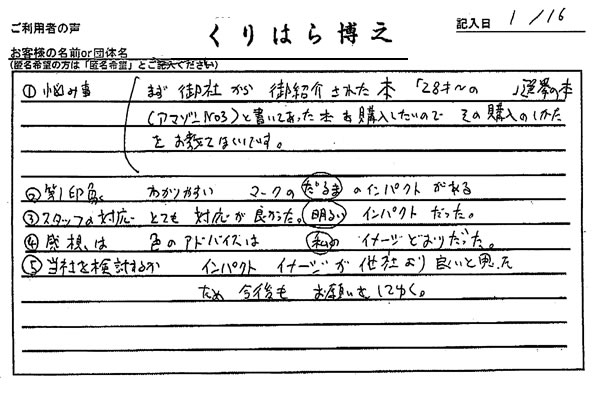 ご利用者の声
くりはら博之
記入日 1/16
お客様の名前or団体名
(匿名希望の方は「匿名希望」とご記入ください)
① 悩み事 まず 御社から 御紹介された本 「28才〜の 」選挙の本
(アマゾンNo3)と書いてあった本を購入したいので その購入のしかた
をお教えてほしいです。
② 第1印象 わかりやすい マークの だるま のインパクトがある
③ スタッフの対応 とても 対応が良かった。 明るい インパクトだった。
④ 感想は 色のアドバイスは 私の イメージどおりだった。
⑤ 当社を検討するか インパクト イメージが 他社より良いと思った
ため 今後も お願いをしてゆく。